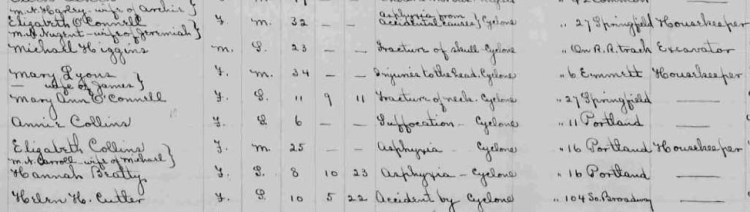 m.n. Hughey - wife of Archie}
Elizabeth O'Connell F. M. 32 — — Asphyxia from accidental causes} Cyclone " 27 Springfield Housekeeper
m.n. Nugent - wife of Jeremiah}
Michael Higgins M. S. 23 — — Fracture of skull - Cyclone " On R.R. track Excavator
Mary Lyons } F. M. 34 — — Injuries to the head. Cyclone " 6 Emmett Housekeeper
— wife of James}
Mary Ann O'Connell F. S. 11 9 11 Fracture of neck. Cyclone " 27 Springfield —
Annie Collins F. S. 6 — — Suffocation - Cyclone " 11 Portland —
Elizabeth Collins } F. M. 25 — — Asphyxia - Cyclone " 16 Portland Housekeeper
m.n. Carroll - wife of Michael}
Hannah Beatty F. S. 8 10 23 Asphyxia - Cyclone " 16 Portland —
Helen H. Cutler F. S. 10 5 22 Accident by Cyclone " 104 So. Broadway —